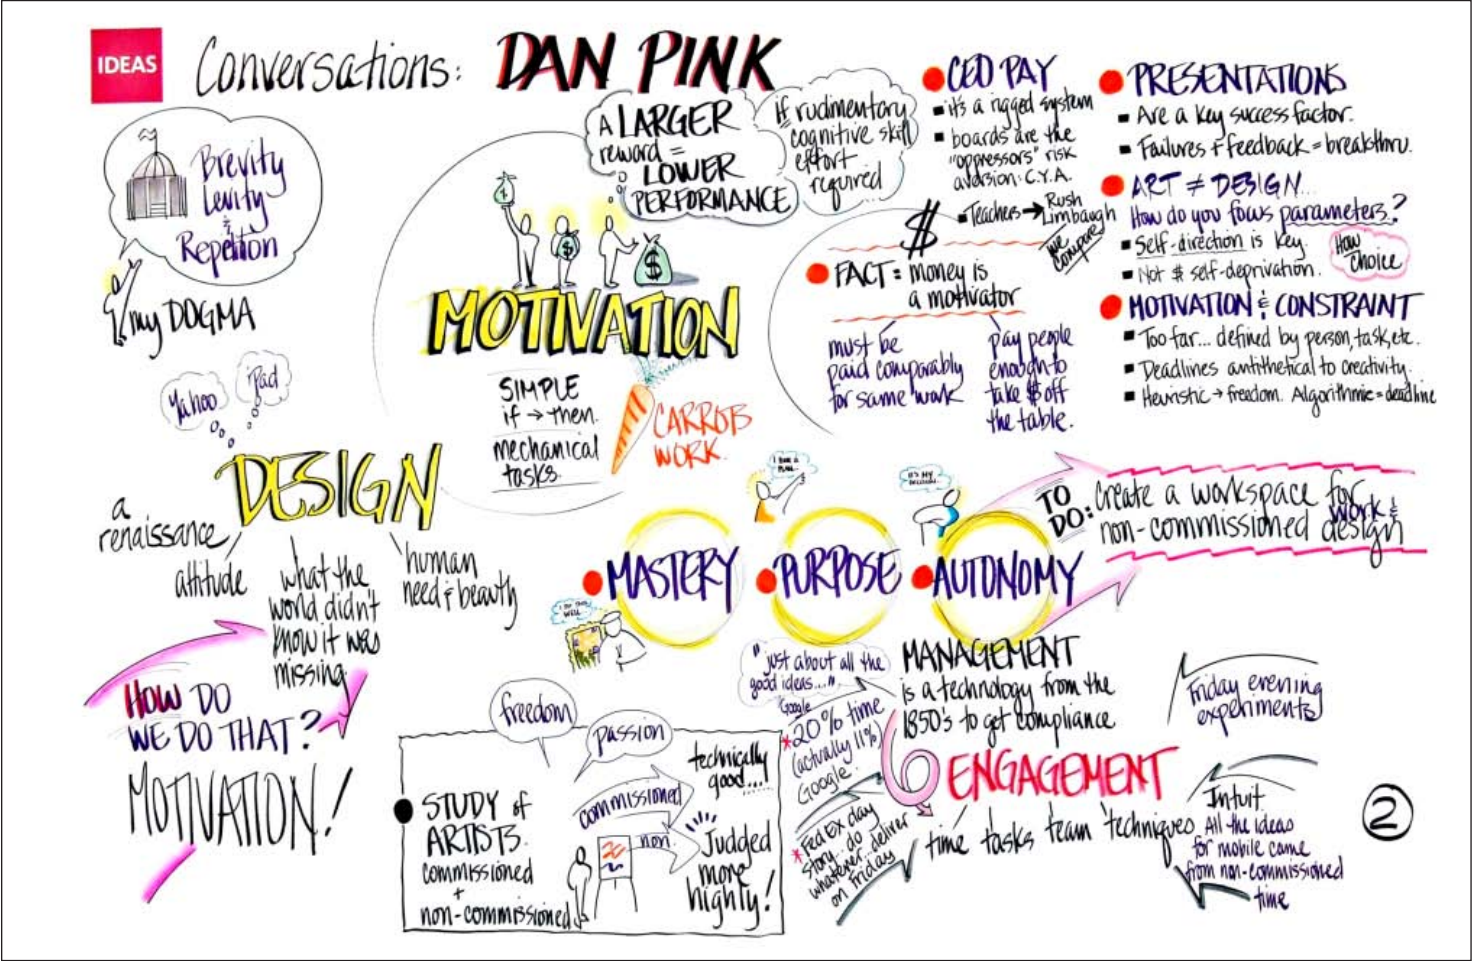 IDEAS
Conversations: DAN PINK
Brevity
Levity
&
Repetition
my DOGMA
A LARGER
reward =
LOWER
PERFORMANCE
if rudimentary
cognitive skill
effort
required
$
$
MOTIVATION
SIMPLE
if → then.
mechanical
tasks.
CARROTS
WORK.
CEO PAY
it's a rigged system
boards are the
"oppressors" risk
aversion: C.Y.A.
Teachers → Rush
Limbaugh
We
Compare
$
FACT = money is
a motivator
must be
paid comparably
for same work
pay people
enough to
take $ off
the table.
PRESENTATIONS
Are a key success factor.
Failures + feedback = breakthru.
ART ≠ DESIGN...
How do you focus parameters?
Self-direction is key.
Not $ self-deprivation.
How
Choice
MOTIVATION & CONSTRAINT
Too far... defined by person, task, etc.
Deadlines antithetical to creativity.
Heuristic → freedom. Algorithmic = deadline
Yahoo
iPad
DESIGN
a
renaissance
attitude
what the
world didn't
know it was
missing
human
need & beauty
HOW DO
WE DO THAT?
MOTIVATION!
IT'S MY
MASTERY
PURPOSE
AUTONOMY
TO
DO:
Create a workspace for
non-commissioned work &
design
"just about all the
good ideas..."
Google
*20% time
(actually 11%)
Google.
*FedEx day
story... do
whatever... deliver
on Friday
MANAGEMENT
is a technology from the
1850's to get compliance
ENGAGEMENT
time tasks team techniques
Friday evening
experiments
Intuit
All the ideas
for mobile came
from non-commissioned
time
freedom
passion
STUDY of
ARTISTS.
commissioned
+
non-commissioned
commissioned
non.
technically
good...
Judged
more
highly!
2